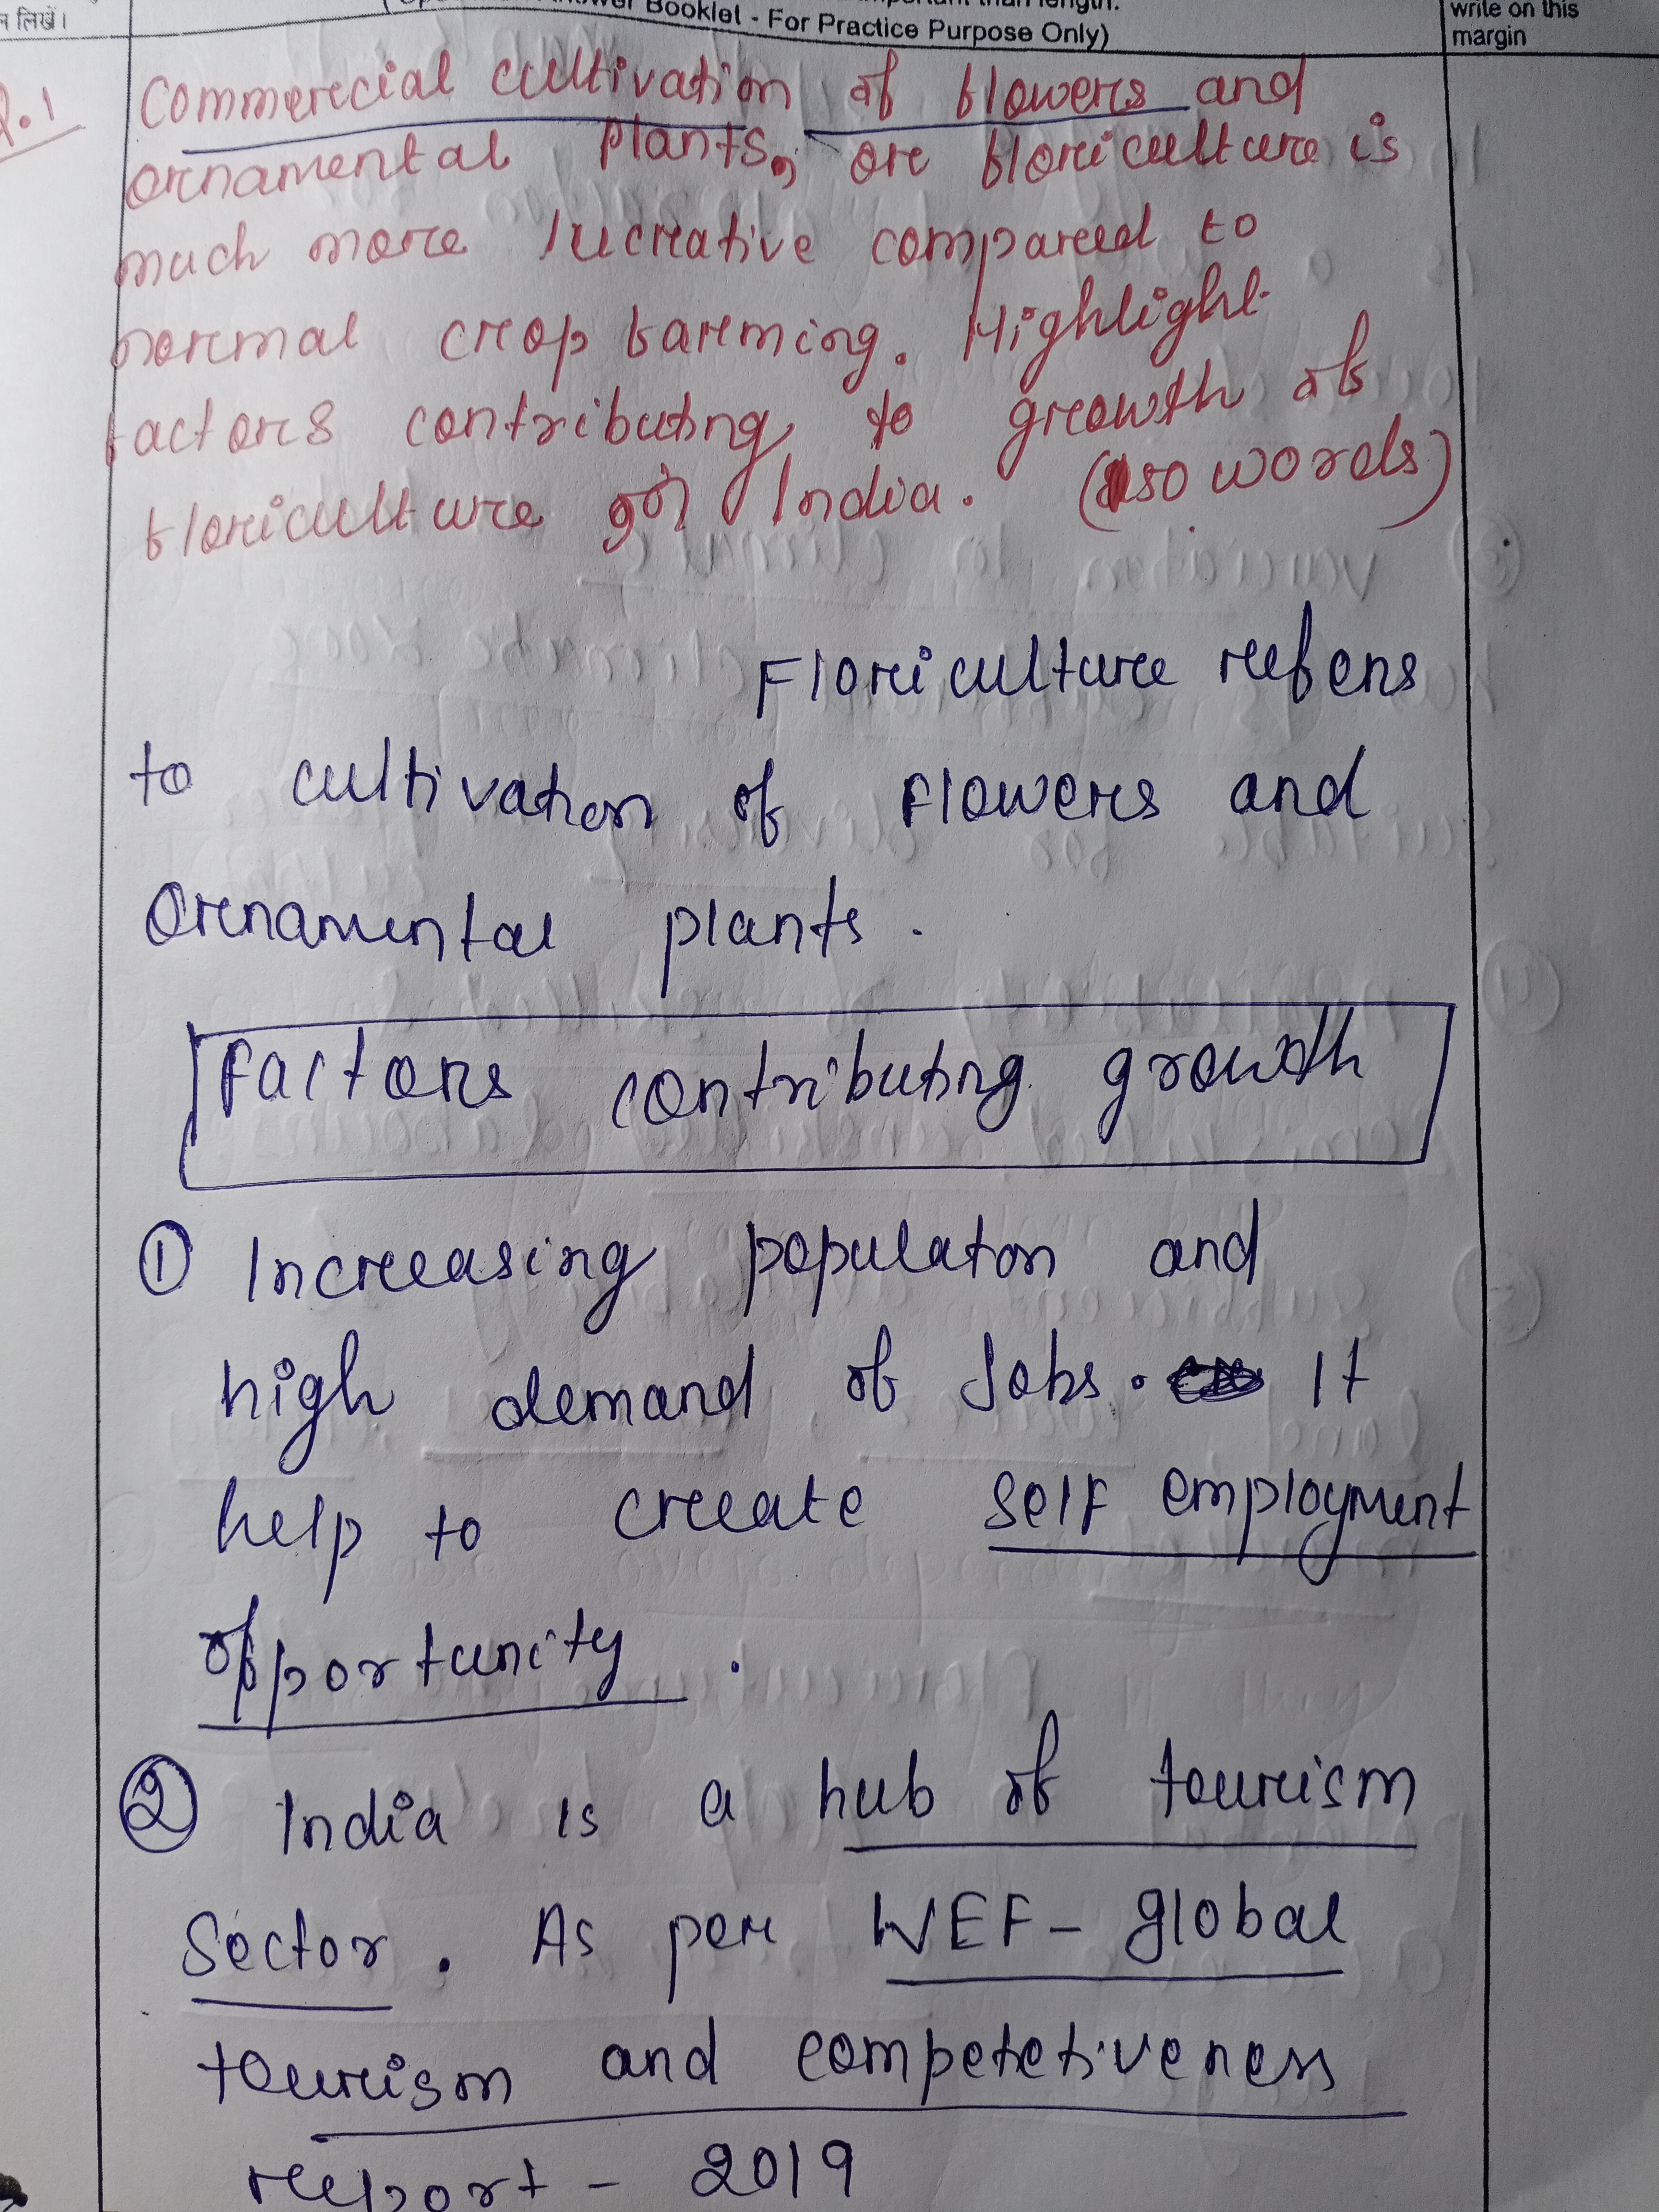 न लिखें।
Booklet - For Practice Purpose Only)
write on this
margin
Q.1 Commercial cultivation of flowers and
ornamental plants, or floriculture is
much more lucrative compared to
normal crop farming. Highlight
factors contributing to growth of
floriculture in India. (150 words)
Floriculture refers
to cultivation of flowers and
Ornamental plants.
Factors contributing growth
① Increasing populaton and
high demand of Jobs. It
help to create self employment
opportunity.
② India is a hub of tourism
Sector. As per WEF - global
tourism and competetiveness
report - 2019